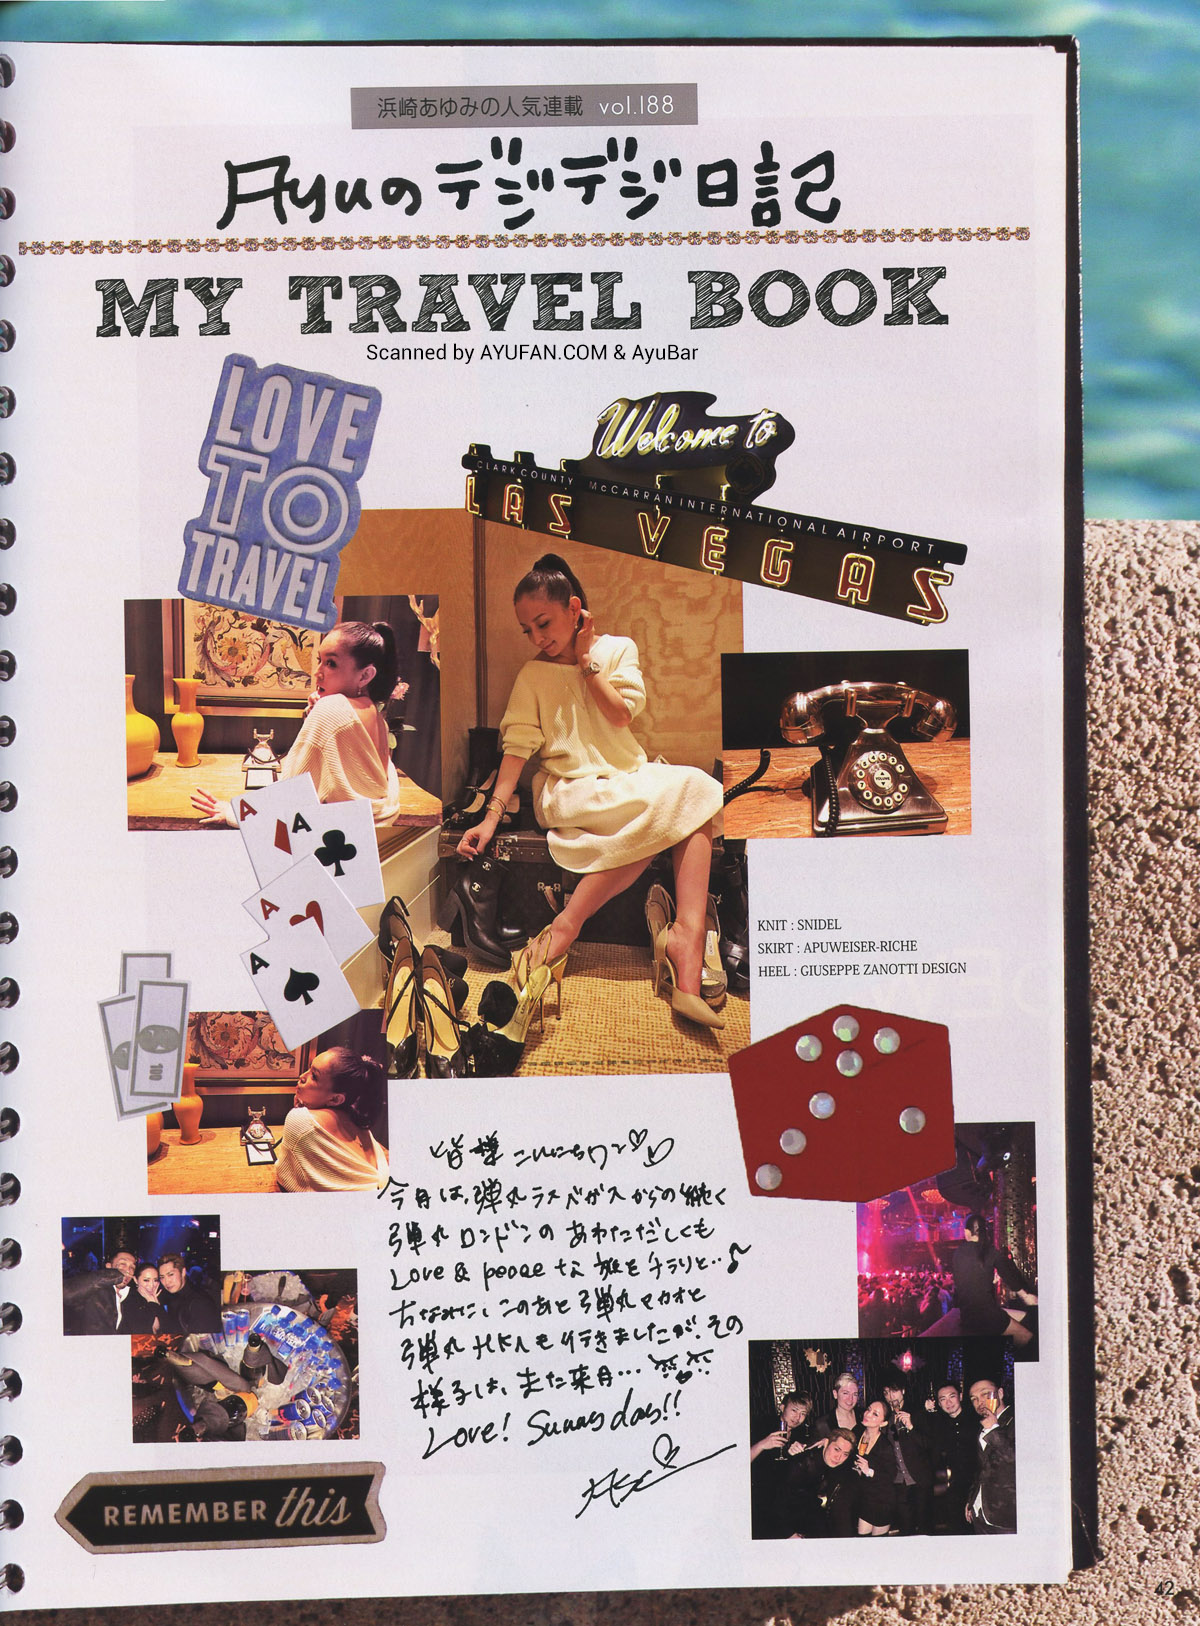 浜崎あゆみの人気連載 vol.188
Ayuのデジデジ日記
MY TRAVEL BOOK
Scanned by AYUFAN.COM & AyuBar
LOVE
TO
TRAVEL
Welcome to
CLARK COUNTY McCARRAN INTERNATIONAL AIRPORT
LAS VEGAS
A
A
A
A
KNIT : SNIDEL
SKIRT : APUWEISER-RICHE
HEEL : GIUSEPPE ZANOTTI DESIGN
100
皆様こんにちワン♡
今月は、弾丸ラスベガスからの続く
弾丸ロンドンのあわただしくも
Love & peaceな旅をチラリと..♪
ちなみに、このあと弾丸マカオと
弾丸HKにも行きましたが、その
様子は、また来月...
Love! Sunny days!!
REMEMBER this
42